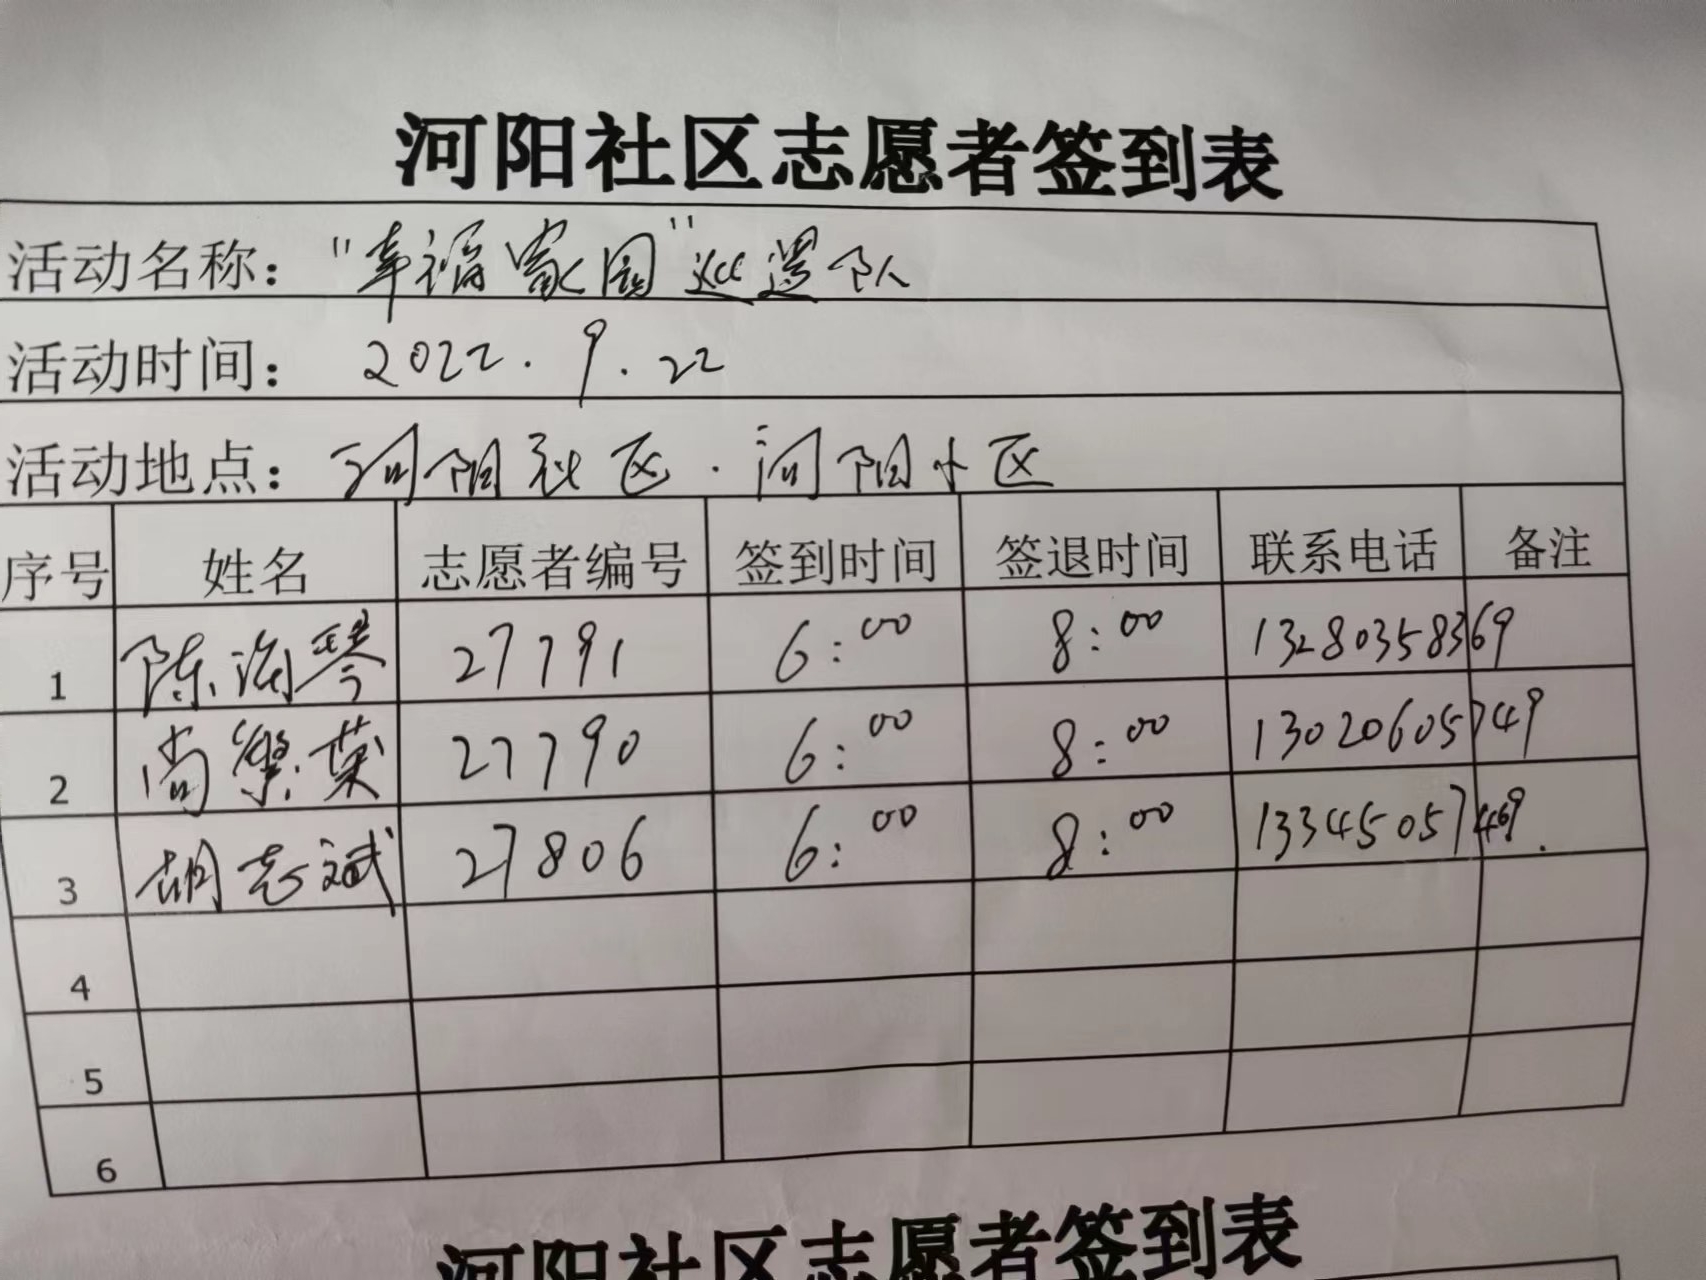 河阳社区志愿者签到表
活动名称： “幸福家园”巡逻队
活动时间： 2022.9.22
活动地点： 河阳社区.河阳小区
序号 姓名 志愿者编号 签到时间 签退时间 联系电话 备注
1 陈海琴 27791 6:00 8:00 13280358369
2 尚繁葉 27790 6:00 8:00 13020605749
3 胡志斌 27806 6:00 8:00 13345057469.
4
5
6
河阳社区志愿者签到表